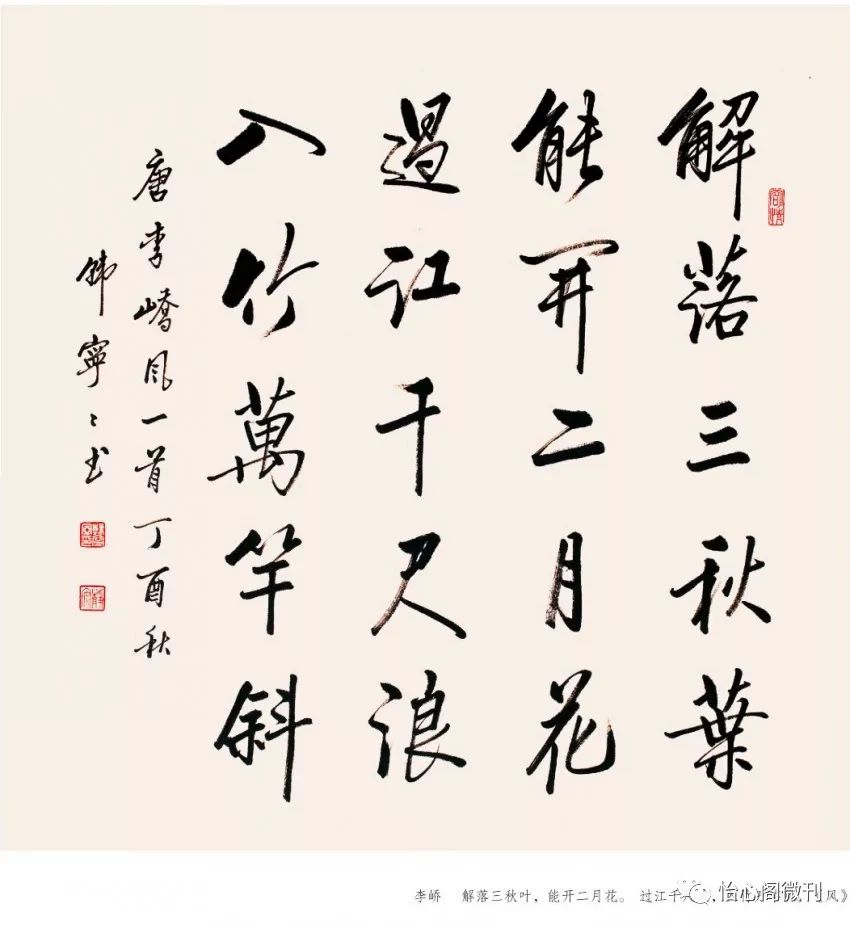 解落三秋葉
能開二月花
過江千尺浪
入竹萬竿斜
唐李嶠風一首丁酉秋
韓寧々书
李峤 解落三秋叶，能开二月花。 过江千 风》
怡心阁微刊